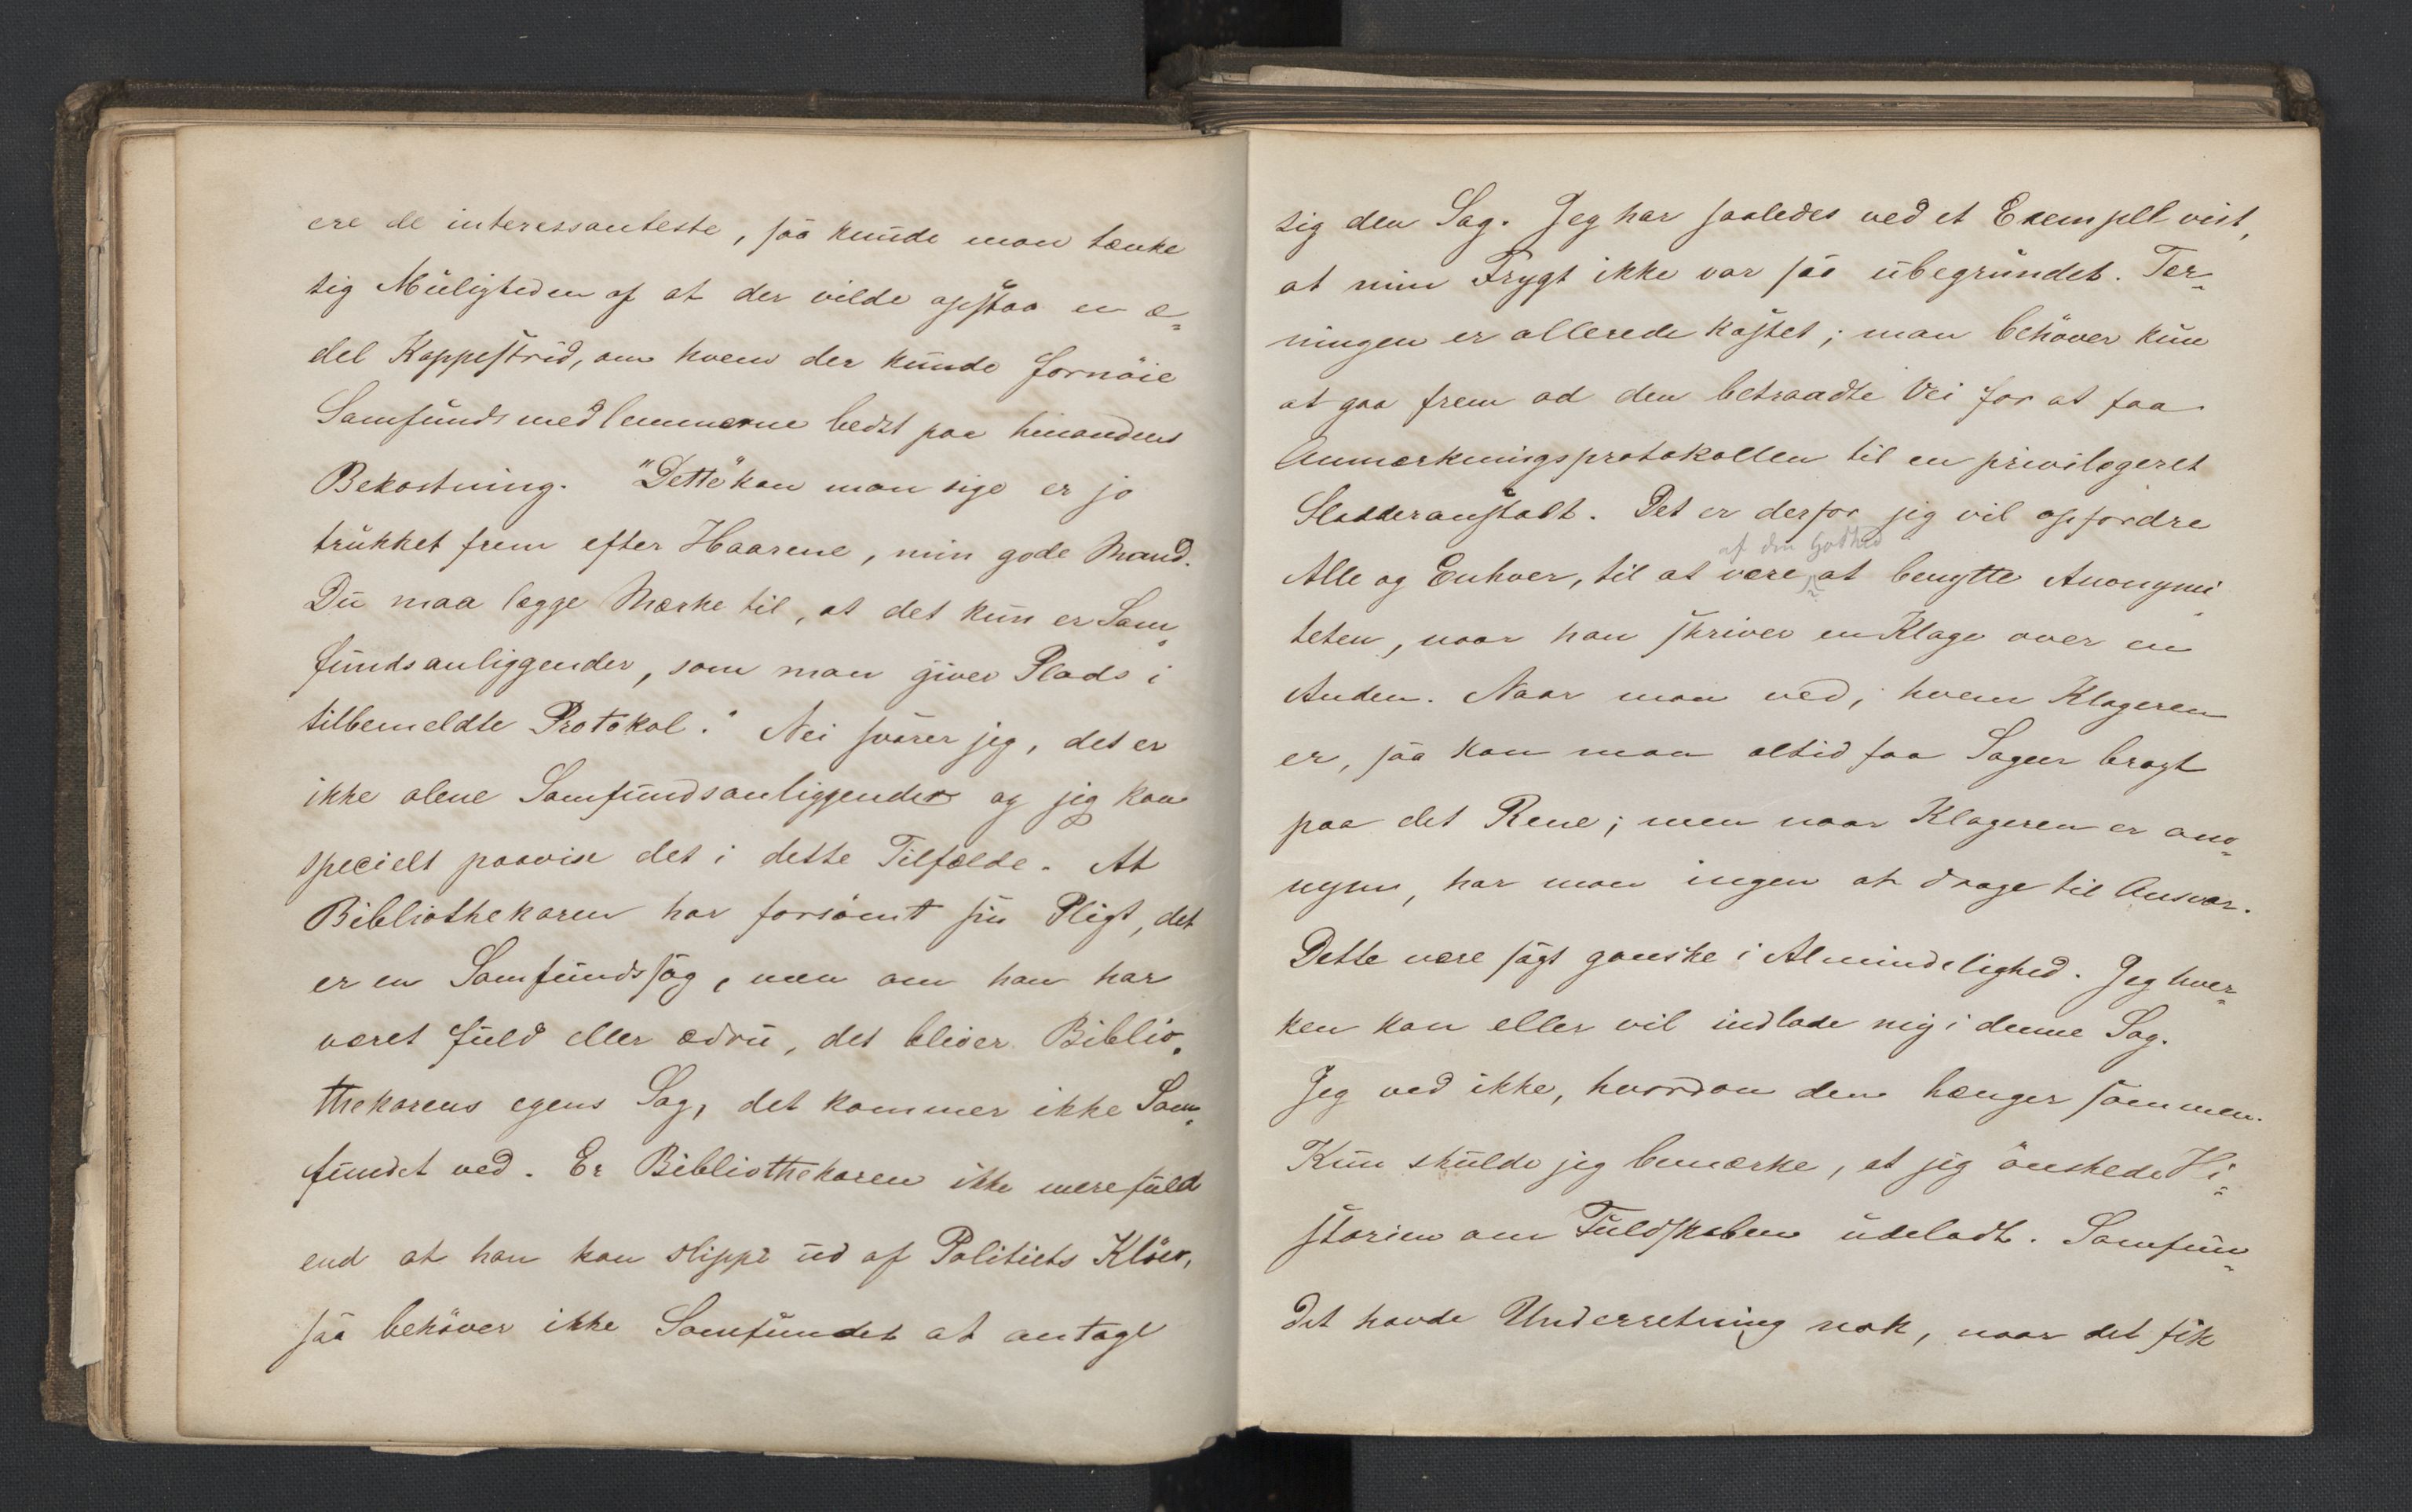 ere de interessanteste, saa kunde man tænke
sig Muligheden af at der vilde opstaa en æ=
del Kappestrid, om hvem der kunde fornöie
Samfundsmedlemmerne bedst paa hinandens
Bekostning. "Dette" kan man sige er jo
trukket frem efter Haarene, min gode Mand.
Du maa lægge Mærke til, at det kun er Sam=
fundsanliggender, som man giver Plads i
tilbemeldte Protokol." Nei svarer jeg, det er
ikke alene Samfundsanliggender og jeg kan
specielt paavise det i dette Tilfælde. At
Bibliothekaren har forsömt sin Pligt, det
er en Samfundssag, men om han har
været fuld eller ædru, det bliver Biblio=
thekarens egens Sag, det kommer ikke Sam=
fundet ved. Er Bibliothekaren ikke mere fuld
end at han kan slippe ud af Politiets Klöer,
saa behöver ikke Samfundet at antage
sig den Sag. Jeg har saaledes ved et Exempel vist,
at min Frygt ikke var saa ubegrundet. Ter=
ningen er allerede kastet; man behöver kun
at gaa frem ad den betraadte Vei for at faa
Anmærkningsprotokollen til en privilegeret
Sladderanstalt. Det er derfor jeg vil opfordre
af den Godhed
Alle og Enhver, til at være at benytte Anonymi=
teten, naar han skriver en Klage over en
Anden. Naar man ved, hvem Klageren
er, saa kan man altid faa Sagen bragt
paa det Rene; men naar Klageren er ano=
nym, har man ingen at drage til Ansvar.
Dette være sagt ganske i Almindelighed. Jeg hver=
ken kan eller vil indlade mig i denne Sag.
Jeg ved ikke, hvordan den hænger sammen.
Kun skulde jeg bemærke, at jeg önskede Hi=
storien om Fuldskaben udeladt. Samfun=
det havde Underretning nok, naar det fik